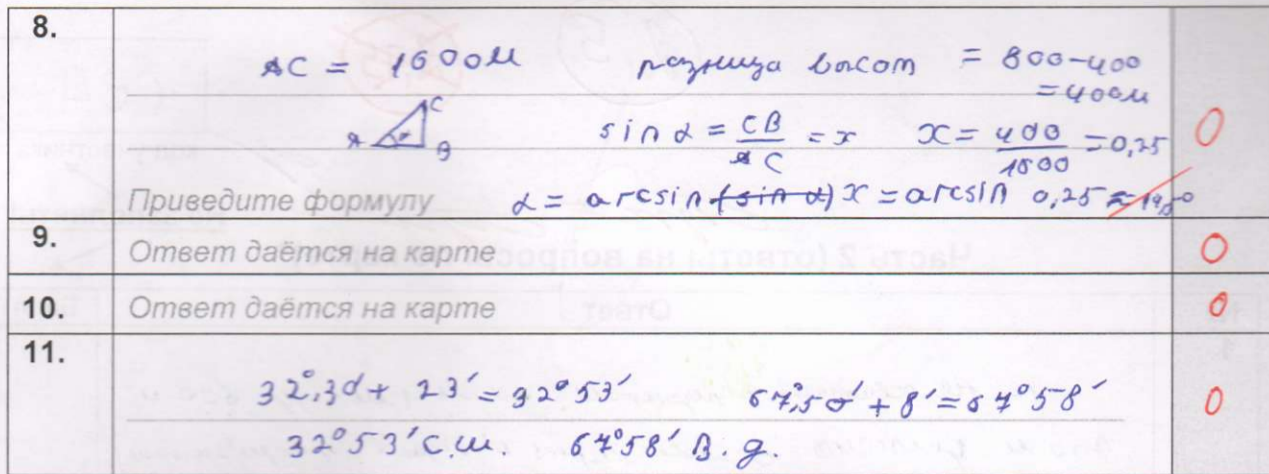 8.
AC = 1600м разница высот = 800-400
= 400м
C
A α B
sin α = CB/AC = x x = 400/1600 = 0,25
0
Приведите формулу α = arcsin (sin α) x = arcsin 0,25 ≈
9. Ответ даётся на карте 0
Часть 2 (ответы на вопросы
10. Ответ даётся на карте 0
Ответ
11.
32°,30' + 23' = 32°53' 67°,50' + 8' = 67°58' 0
32°53' с.ш. 67°58' в.д.